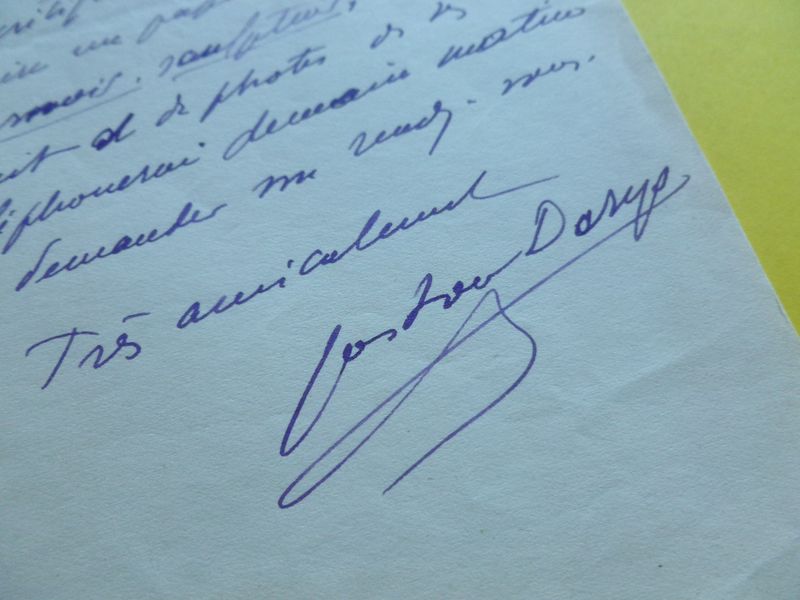 un pap
sculpteur,
et de photos et de
phonerai demain matin
demander un rendez-vous.
Très amicalement
Gaston Darys